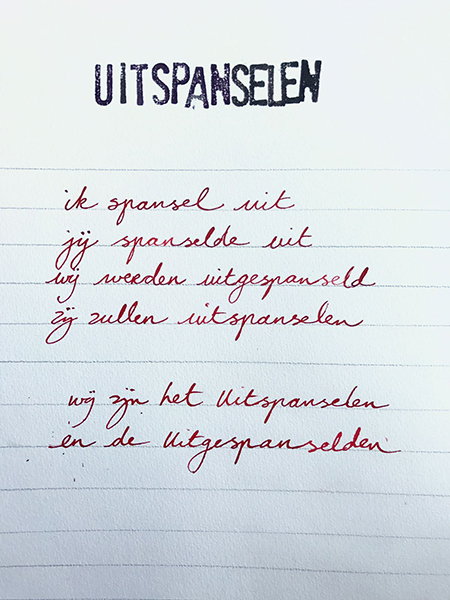 UITSPANSELEN
ik spansel uit
jij spanselde uit
wij werden uitgespanseld
zij zullen uitspanselen
wij zijn het Uitspanselen
en de Uitgespanselden